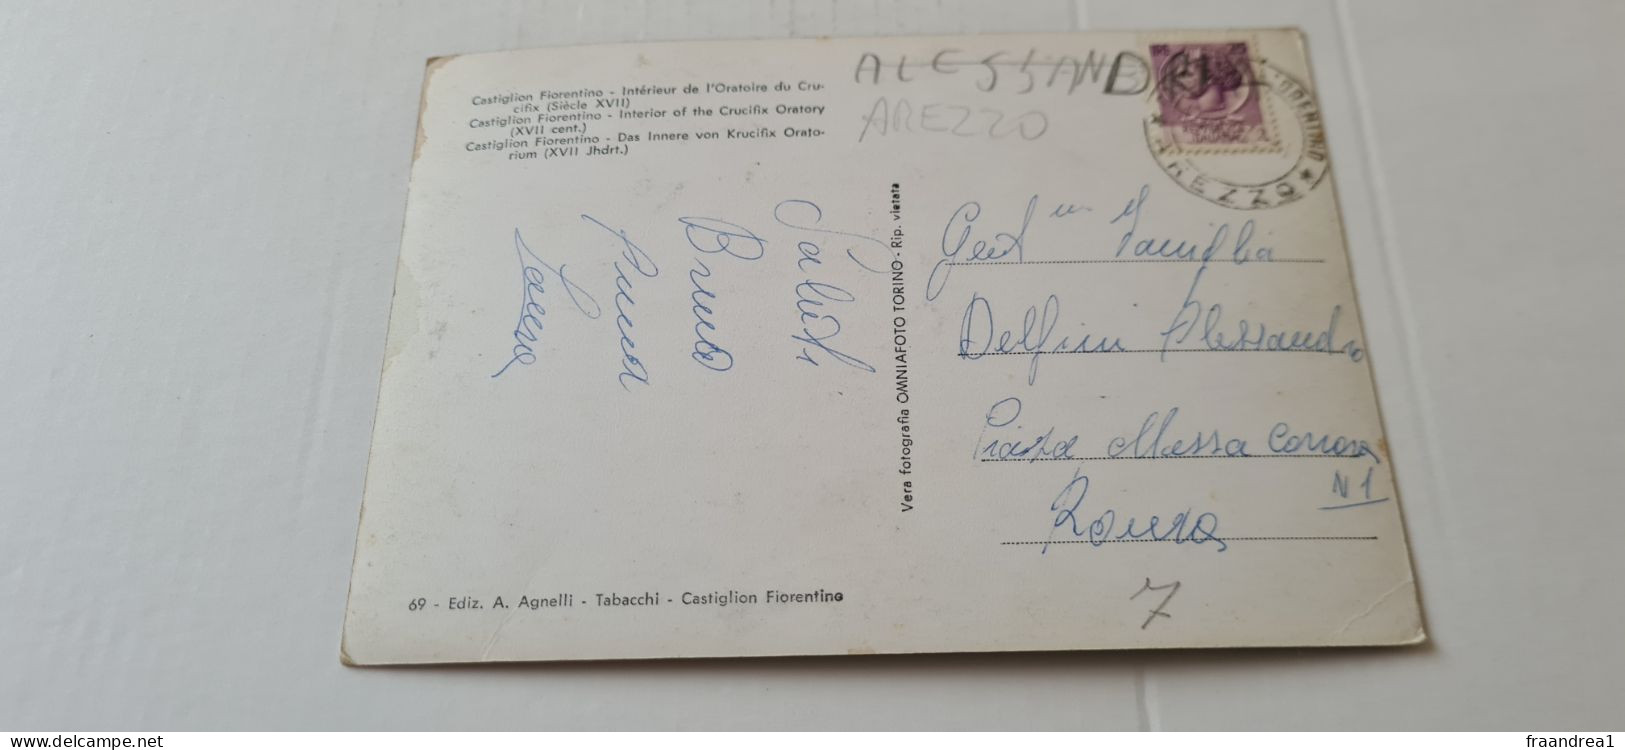 Castiglion Fiorentino - Intérieur de l'Oratoire du Cru-
cifix (Siècle XVII)
Castiglion Fiorentino - Interior of the Crucifix Oratory
(XVII cent.)
Castiglion Fiorentino - Das Innere von Krucifix Orato-
rium (XVII Jhdrt.)
ALESSANDRIA
AREZZO
AREZZO
Saluti
Bruno
Vera fotografia OMNIAFOTO TORINO - Rip. vietata
Gent Famiglia
Delfini Alessandro
Piazza Massa Carrara
N 1
Roma
7
69 - Ediz. A. Agnelli - Tabacchi - Castiglion Fiorentino
www.delcampe.net
fraandrea1